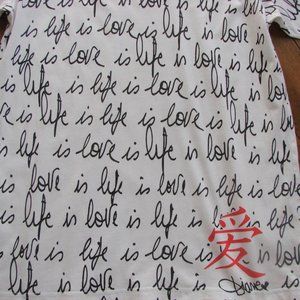 is life is love is life is love is
is life is love is life is love is
is life is love is life is love is
life is love is life is love is
is life is love is life is love is
life is love is life is love is li
is life is love is life is love
life is love is life is love is
is love is life is love is
life is love is life is
love is life is love is
is life is love is
爱